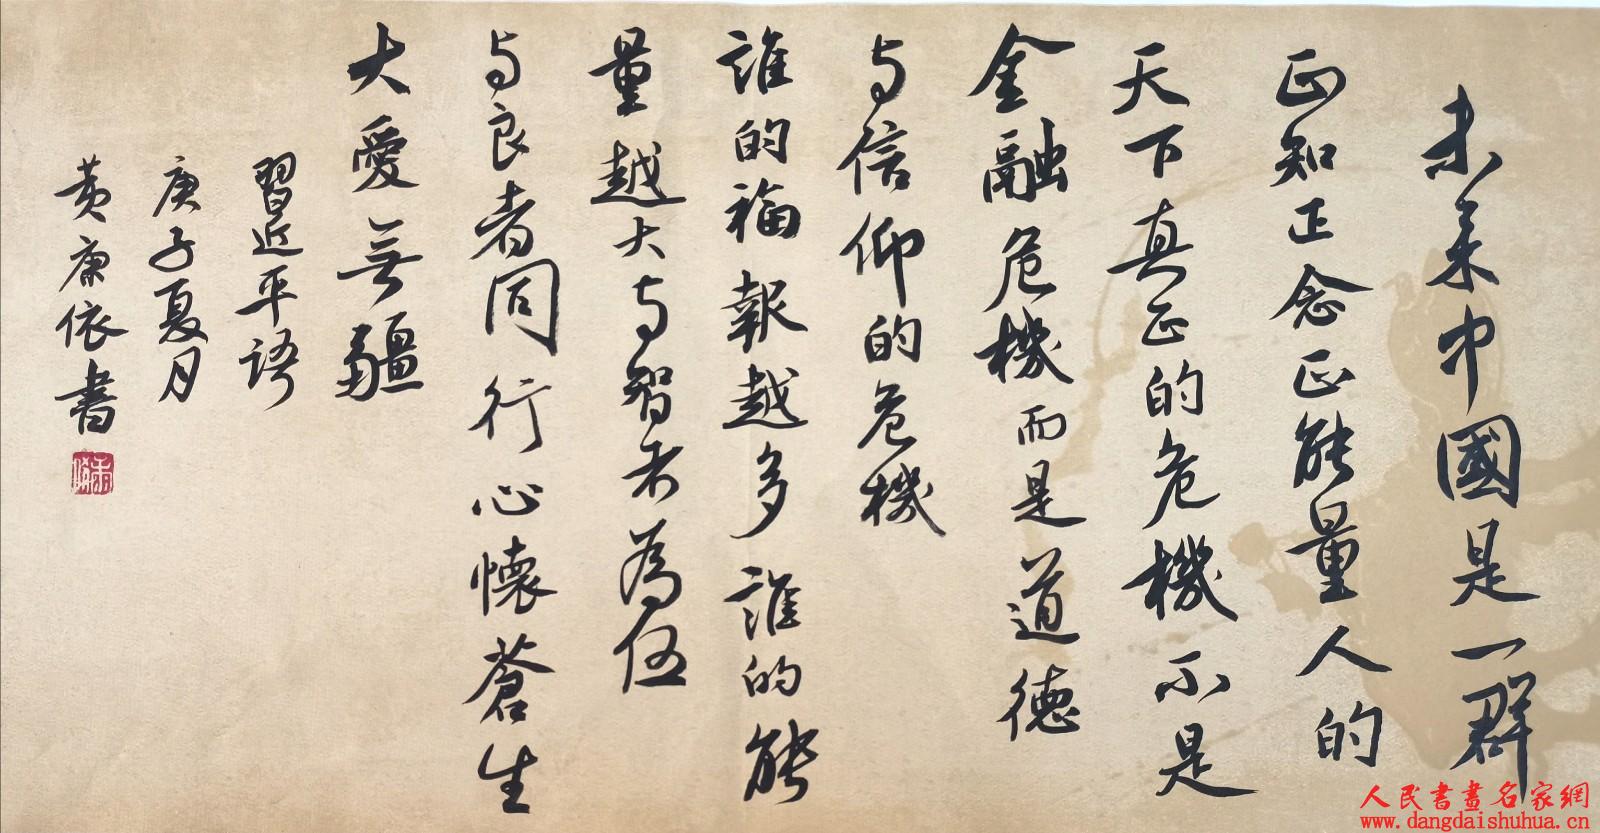 未来中國是一群
正知正念正能量人的
天下真正的危機不是
金融危機而是道德
与信仰的危機
誰的福報越多誰的能
量越大与智者為伍
与良者同行心懷蒼生
大愛無疆
習近平语
庚子夏月
黄康依書
人民書畫名家網
www.dangdaishuhua.cn